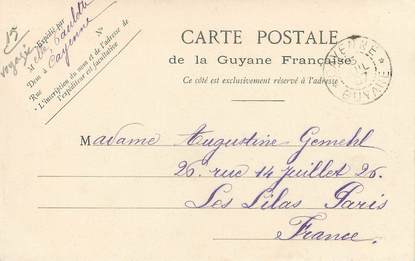 15
voyage
Expédié par
M
Dom à Cayenne
Rue N°
L'inscription du nom et de l'adresse de
l'expéditeur est facultative
CARTE POSTALE
de la Guyane Française
Ce côté est exclusivement réservé à l'adresse
CAYENNE
GUYANE
Madame Augustine Gemehl
26 rue 14 juillet 26.
Les Lilas Paris
France.